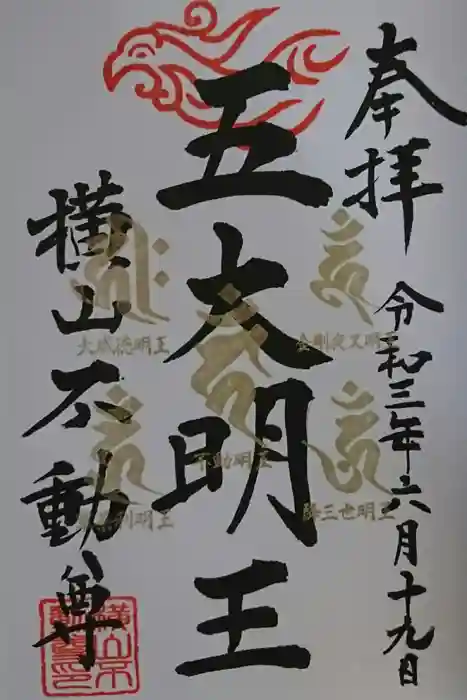 奉拝
令和三年六月十九日
五大明王
横山不動尊
金剛夜叉明王
降三世明王
不動明王
大威徳明王